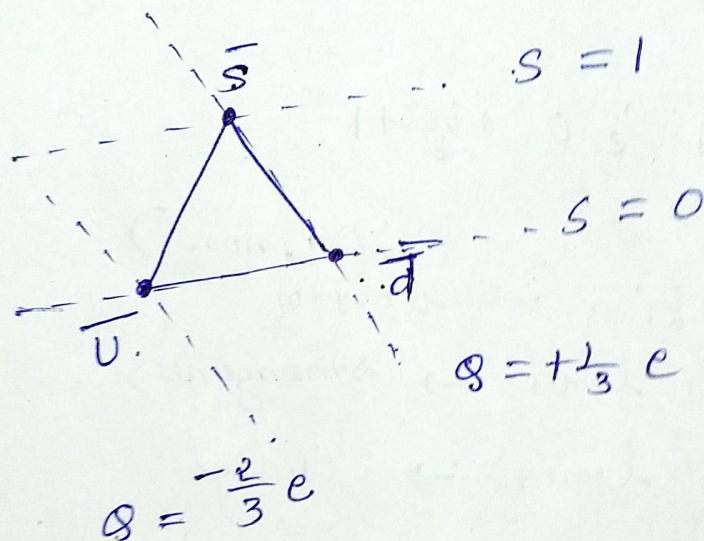 s̄
S = 1
S = 0
d̄
U̅
Q = +1/3 e
Q = -2/3 e